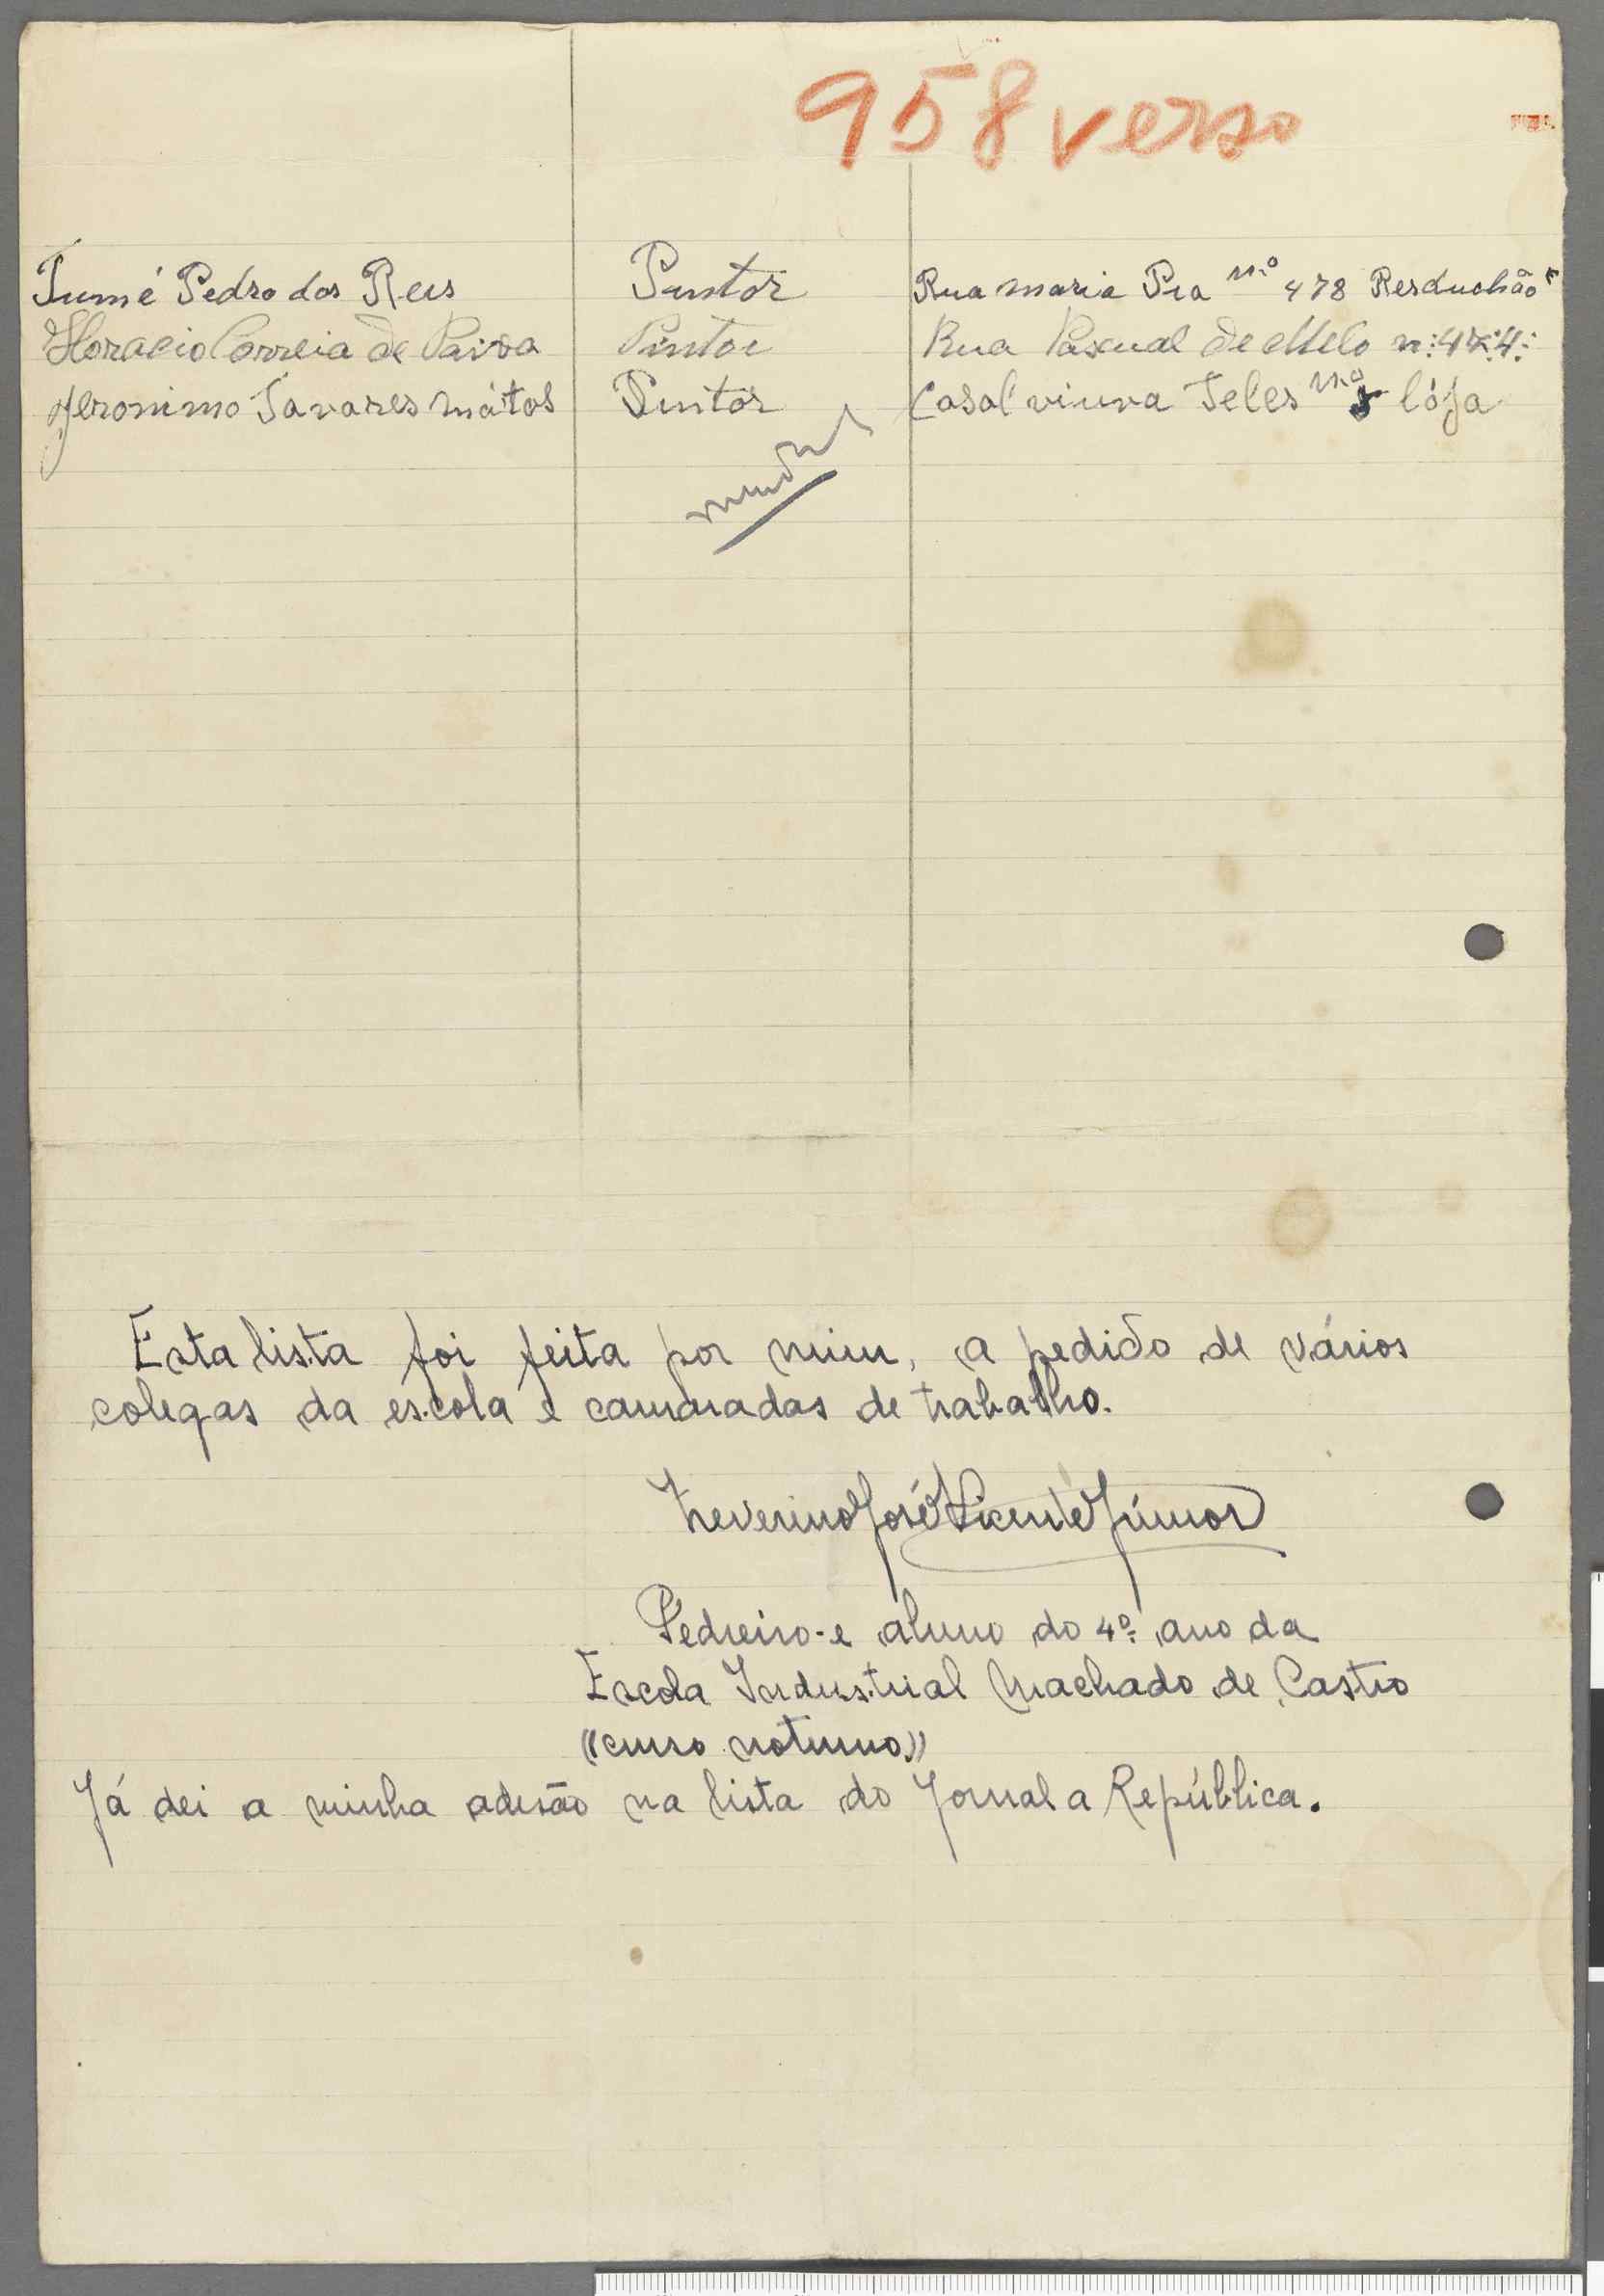 958 verso
Tumé Pedro dos Reis Pintor Rua maria Pia n.º 478 Resduchão E
Horacio Correia de Paiva Pintor Rua Pascual de Melo n: 4
Jeronimo Tavares mátos Pintor Casal viuva Teles n.º lója
Esta lista foi feita por mim, a pedido de vários
colegas da escola e camaradas de trabalho.
José Vicente Júnior
Pedreiro - e aluno do 4º ano da
Escola Industrial Machado de Castro
"curso noturno"
Já dei a minha adesão na lista do Jornal a República.